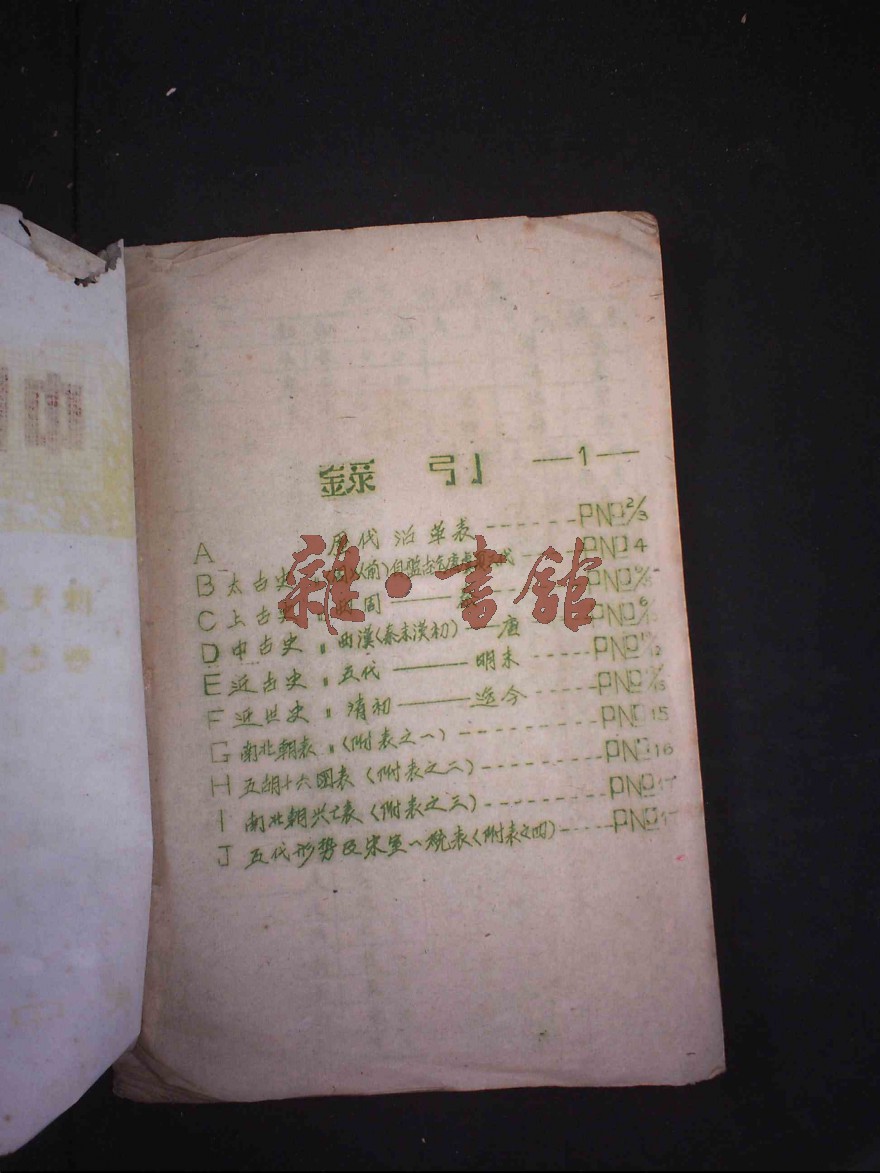 引錄 —1—
A 历代沿革表------PNO2/3
B 太古史〃 (前)-----PNO4
C 上古史〃 周——-----PNO
D 中古史〃西漢(秦末漢初)——唐-----PNO
E 近古史〃五代——明末-----PNO
F 近世史〃清初——迄今-----PNO
G 南北朝表〃(附表之一)-----PNO15
H 五胡十六國表(附表之二)-----PNO16
I 南北朝兴亡表(附表之三)-----PNO
J 五代形势及宋室一統表(附表之四)-----PNO
雜·書館